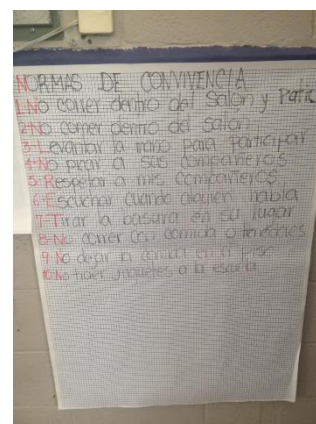 NORMAS DE CONVIVENCIA
1-No correr dentro del salón y Patio
2-No comer dentro del salon
3-Levantar la mano para Participar
4-No picar a sus compañeros
5-Respetar a mis compañeros
6-Escuchar cuando alguien habla
7-Tirar la basura en su lugar
8-No correr con comida o tenedores
9-No dejar la comida en el Piso
10-No traer juguetes a la escuela